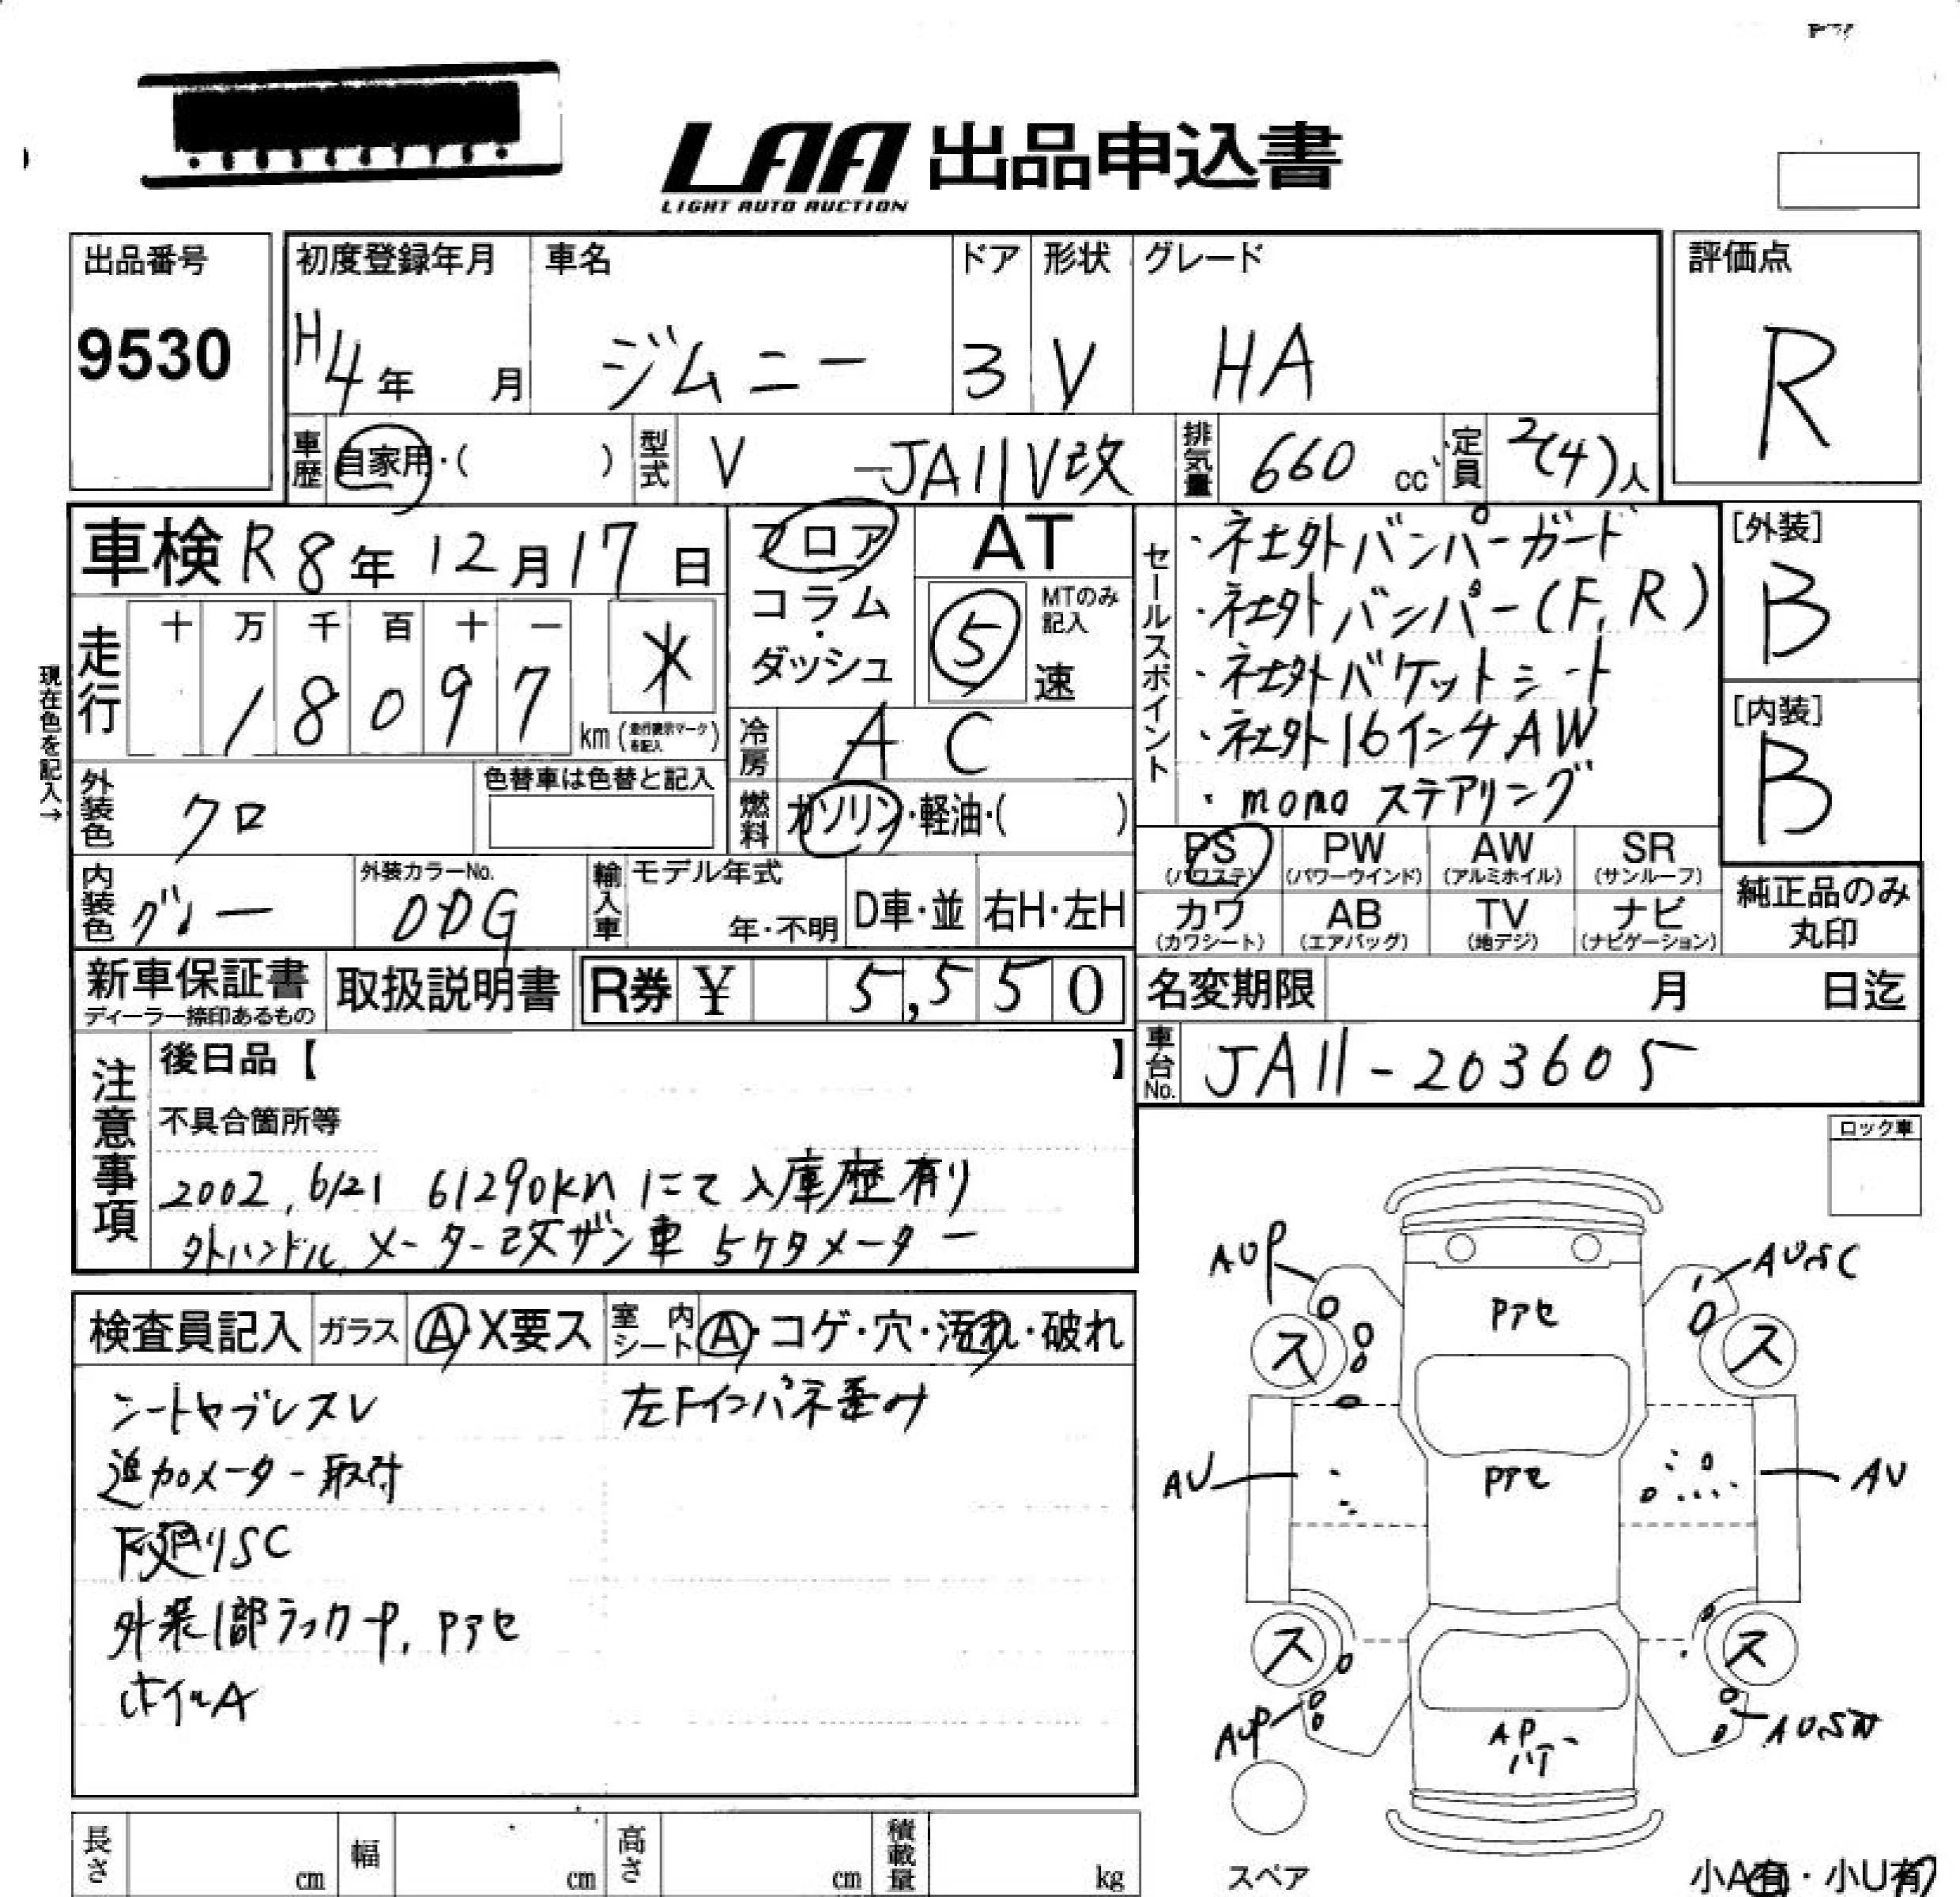 LAA 出品申込書
LIGHT AUTO AUCTION
出品番号
9530
初度登録年月
H4年 月
車名
ジムニー
ドア
3
形状
V
グレード
HA
評価点
R
車歴
自家用・( )
型式
V -JA11V改
排気量
660 cc
定員
2(4)人
車検 R8年12月17日
フロア
コラム・
ダッシュ
AT
5
MTのみ
記入
速
現在色を記入→
走行
十 万 千 百 十 一
1 8 0 9 7
km (走行表示マークを記入)
冷房
AC
燃料
ガソリン・軽油・( )
外装色
クロ
色替車は色替と記入
内装色
グレー
外装カラーNo.
0DG
輸入車
モデル年式
年・不明
D車・並
右H・左H
新車保証書
ディーラー捺印あるもの
取扱説明書
R券 ¥ 5,550
セールスポイント
・社外バンパーガード
・社外バンパー(F,R)
・社外バケットシート
・社外16インチAW
・momoステアリング
[外装]
B
[内装]
B
PS
(パワステ)
PW
(パワーウインド)
AW
(アルミホイル)
SR
(サンルーフ)
カワ
(カワシート)
AB
(エアバッグ)
TV
(地デジ)
ナビ
(ナビゲーション)
純正品のみ
丸印
名変期限
月 日迄
車台No.
JA11-203605
注意事項
後日品【 】
不具合箇所等
2002, 6/21 61290km にて入庫歴有り
外ハンドル, メーター改ザン車 5ケタメーター
検査員記入
ガラス
A・X要ス
室内
シート
A・コゲ・穴・汚れ・破れ
シートヤブレスレ
追加メーター取付
下廻りSC
外装1部ラッカーP, Pアセ
ホイルA
左Fインパネ歪み
ロック車
AUP
AUSC
Pアセ
ス
ス
AU
Pアセ
AU
ス
ス
AUP
AP
スペア
長さ
cm
幅
cm
高さ
cm
積載量
kg
小A有・小U有